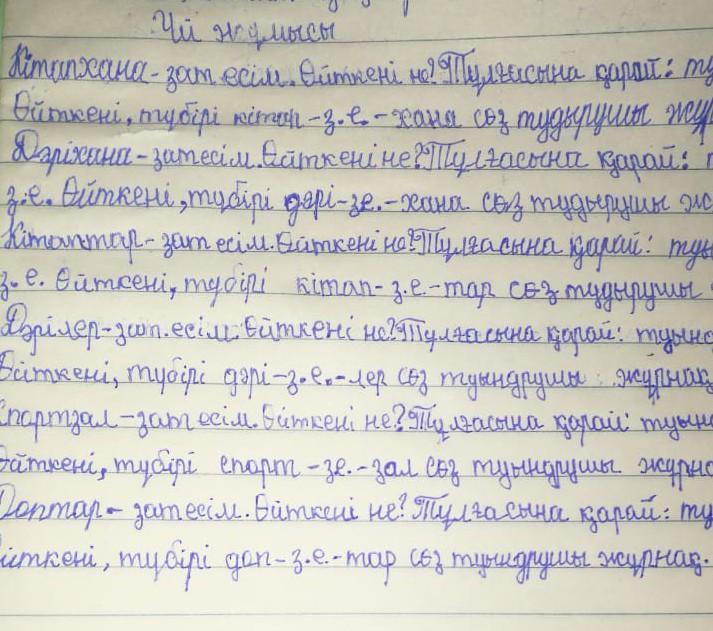 Үй жұмысы
Кітапхана-зат есім. Өйткені не? Тұлғасына қарай:
Өйткені, түбірі кітап-з.е.-хана сөз тудырушы
Дәріхана-зат есім. Өйткені не? Тұлғасына қарай:
з.е. Өйткені, түбірі дәрі-зе.-хана сөз тудырушы
Кітаптар-зат есім. Өйткені не? Тұлғасына қарай:
з.е. Өйткені, түбірі кітап-з.е-тар сөз тудырушы
Дәрілер-зат.есім. Өйткені не? Тұлғасына қарай:
Өйткені, түбірі дәрі-з.е.-лер сөз туындрушы журнақ
Спортзал-зат есім. Өйткені не? Тұлғасына қарай:
Өйткені, түбірі спорт-зе.-зал сөз туындрушы
Доптар-зат есім. Өйткені не? Тұлғасына қарай:
Өйткені, түбірі доп-з.е.-тар сөз туындрушы журнақ.